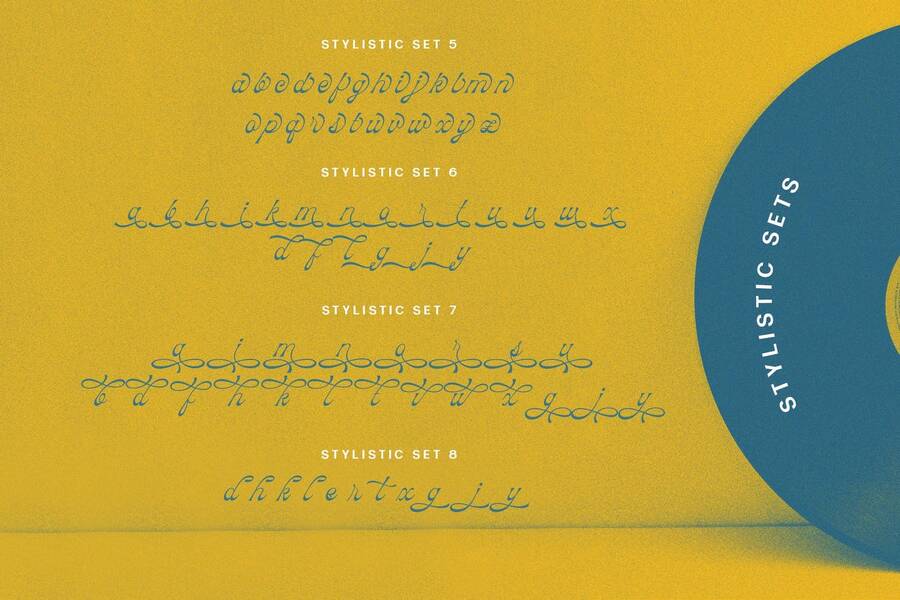 STYLISTIC SET 5
abcdefghijklmn
opqrstuvwxyz
STYLISTIC SET 6
a b h i k m n o r t u v w x
d f l g j y
STYLISTIC SET 7
a i m n o r s u
b d f h k l t v w x g j y
STYLISTIC SET 8
d h k l e r t x g j y
STYLISTIC SETS